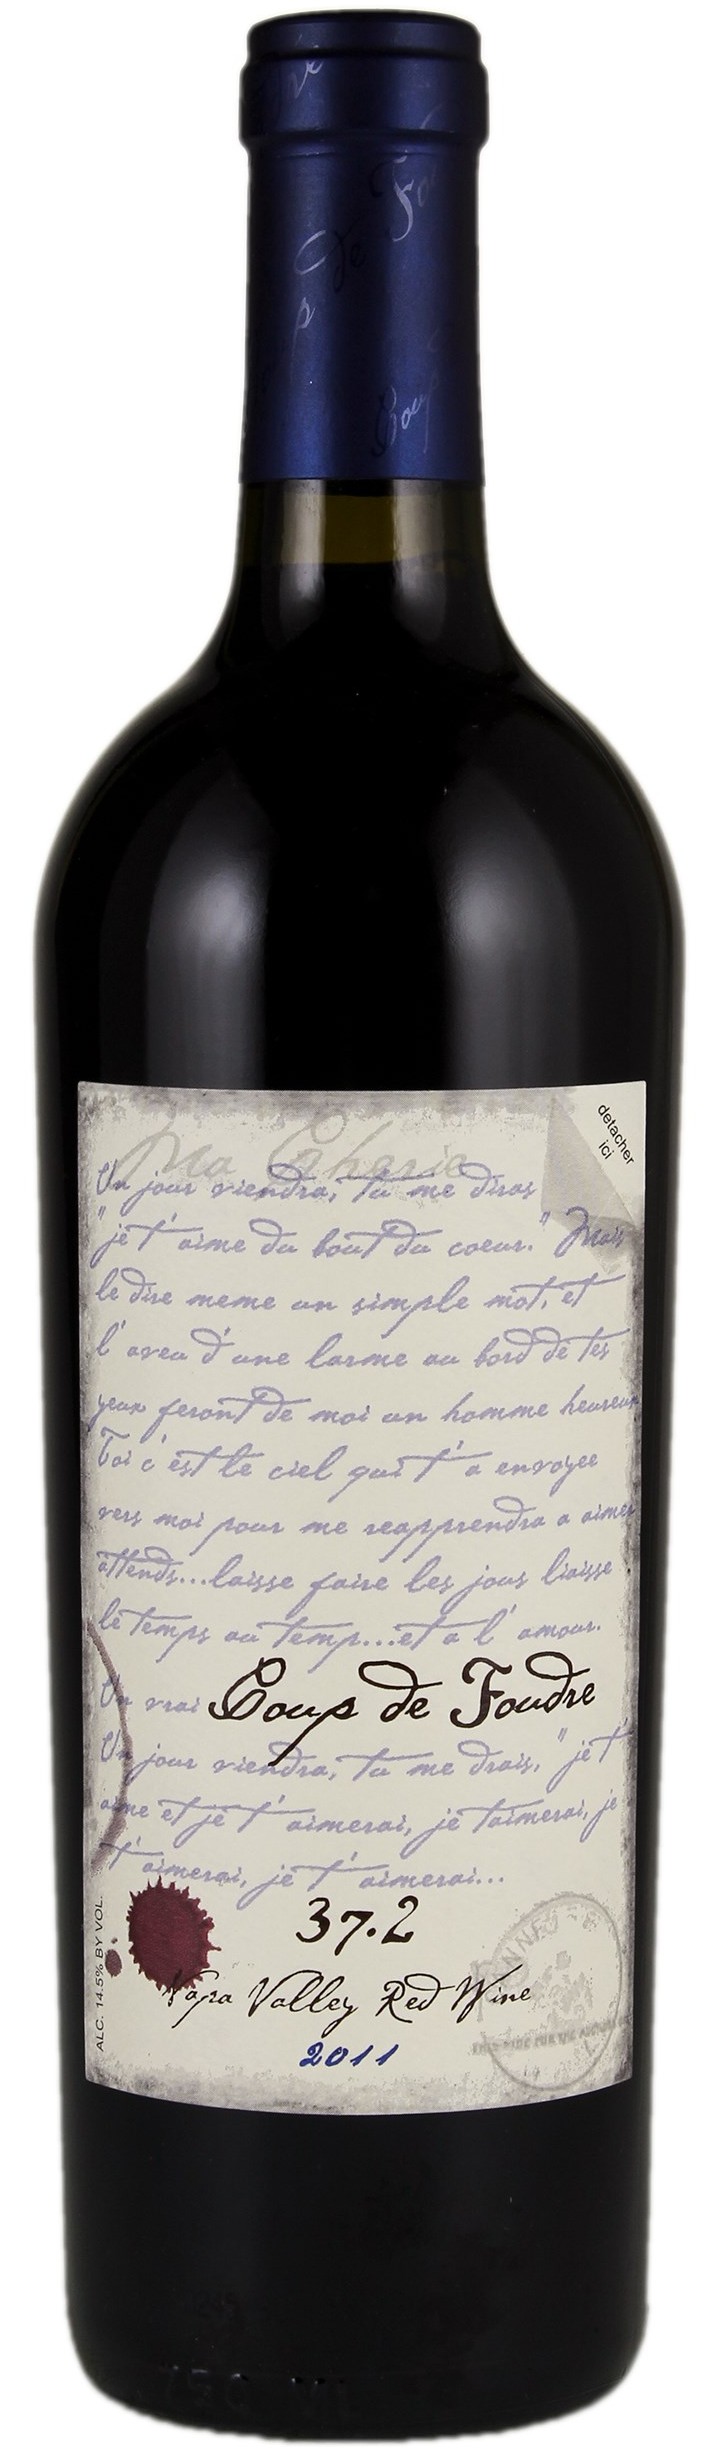 Coup
de Fou
Coup
detacher
ici
Ma Cherie
Un jour viendra, tu me diras
"je t' aime du bout du coeur." Mais
le dire meme un simple mot, et
l' aveu d' une larme au bord de tes
yeux feront de moi un homme heureux
Toi c' est le ciel qui t' a envoyee
vers moi pour me reapprendra a aimer
attends...laisse faire les jous liaisse
le temps au temp...et a l' amour.
Un vrai Coup de Foudre
Un jour viendra, tu me drais, "je t'
aime et je t' aimerai, je taimerai, je
t' aimerai, je t' aimerai...
37.2
Napa Valley Red Wine
2011
ALC. 14.5% BY VOL.